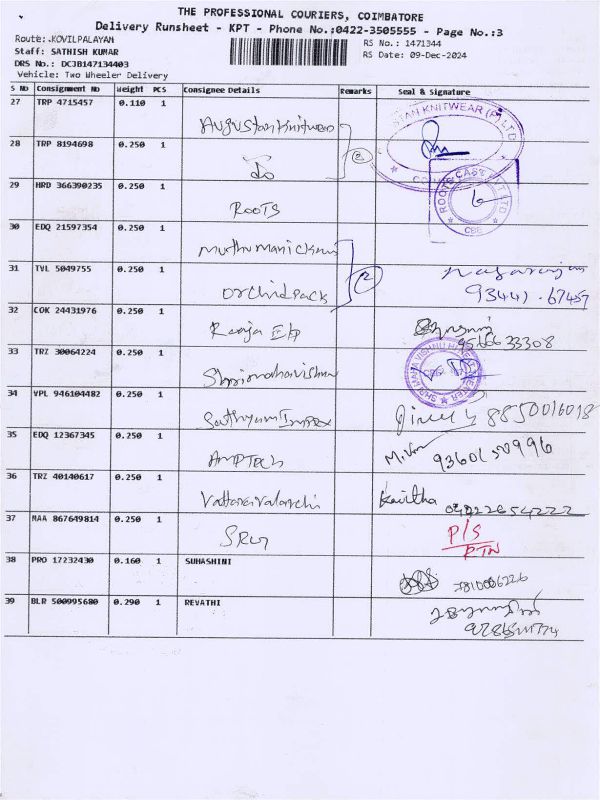 THE PROFESSIONAL COURIERS, COIMBATORE
Delivery Runsheet - KPT - Phone No.:0422-3505555 - Page No.:3
Route: .KOVILPALAYAM
RS No.: 1471344
Staff: SATHISH KUMAR
RS Date: 09-Dec-2024
DRS No.: DCJB147134403
Vehicle: Two Wheeler Delivery
S No Consignment No Weight PCS Consignee Details Remarks Seal & Signature
27 TRP 4715457 0.110 1
Augustan Knitwear
STAN KNITWEAR (P) LTD
28 TRP 8194698 0.250 1
Do
2
29 HRD 366390235 0.250 1
ROOTS
ROOTS CAST LTD
CBE
30 EDQ 21597354 0.250 1
Muthu Manickam
31 TVL 5049755 0.250 1
Orchidpack
2
Nagarajan
93441-67457
32 COK 24431976 0.250 1
Rooja
9566633308
33 TRZ 30064224 0.250 1
Shrimahavishnu
34 VPL 946104482 0.250 1
Sathyam Impex
8850016018
35 EDQ 12367345 0.250 1
AMPTECH
9360150996
36 TRZ 40140617 0.250 1
Kavitha
04222654222
37 MAA 867649814 0.250 1
P/S
RTN
38 PRO 17232430 0.160 1 SUHASHINI
7810006226
39 BLR 500995680 0.290 1 REVATHI